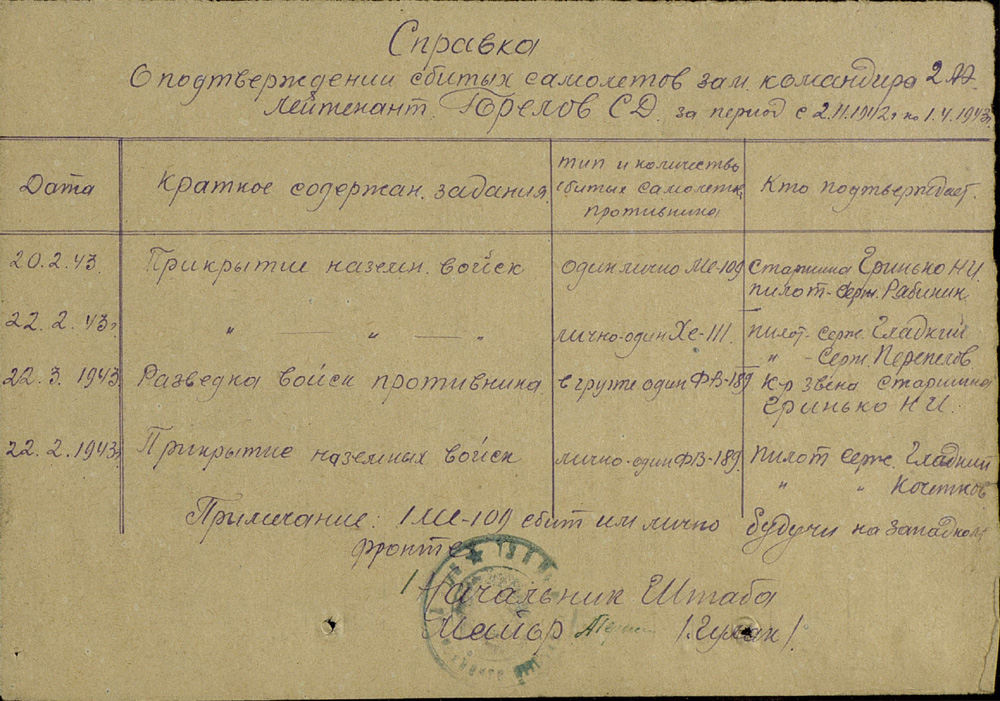 Справка
О подтверждении сбитых самолетов зам. командира 2 АЭ.
Лейтенант Горелов С.Д. за период с 2.11.1942г по 1.4.1943г
Дата
краткое содержан. задания.
тип и количество
сбитых самолетов
противника
Кто подтверждает.
20.2.43.
Прикрытие наземн. войск
один лично МЕ-109
Старшина Еринько Н И.
пилот-серж. Рябинин
22.2.43г
" — " — "
лично-один Хе-111.
пилот-серж. Гладкий
" - Серж. Перепелов
22.3.1943
Разведка войск противника
в группе один ФВ-189
К-р звена старшина
Еринько Н И.
22.2.1943г
Прикрытие наземных войск
лично-один ФВ-189.
Пилот серж. Гладкий
" " Кочетков
Примечание: 1 МЕ-109 сбит им лично будучи на западном
фронте
Начальник Штаба
Майор /Гулак/